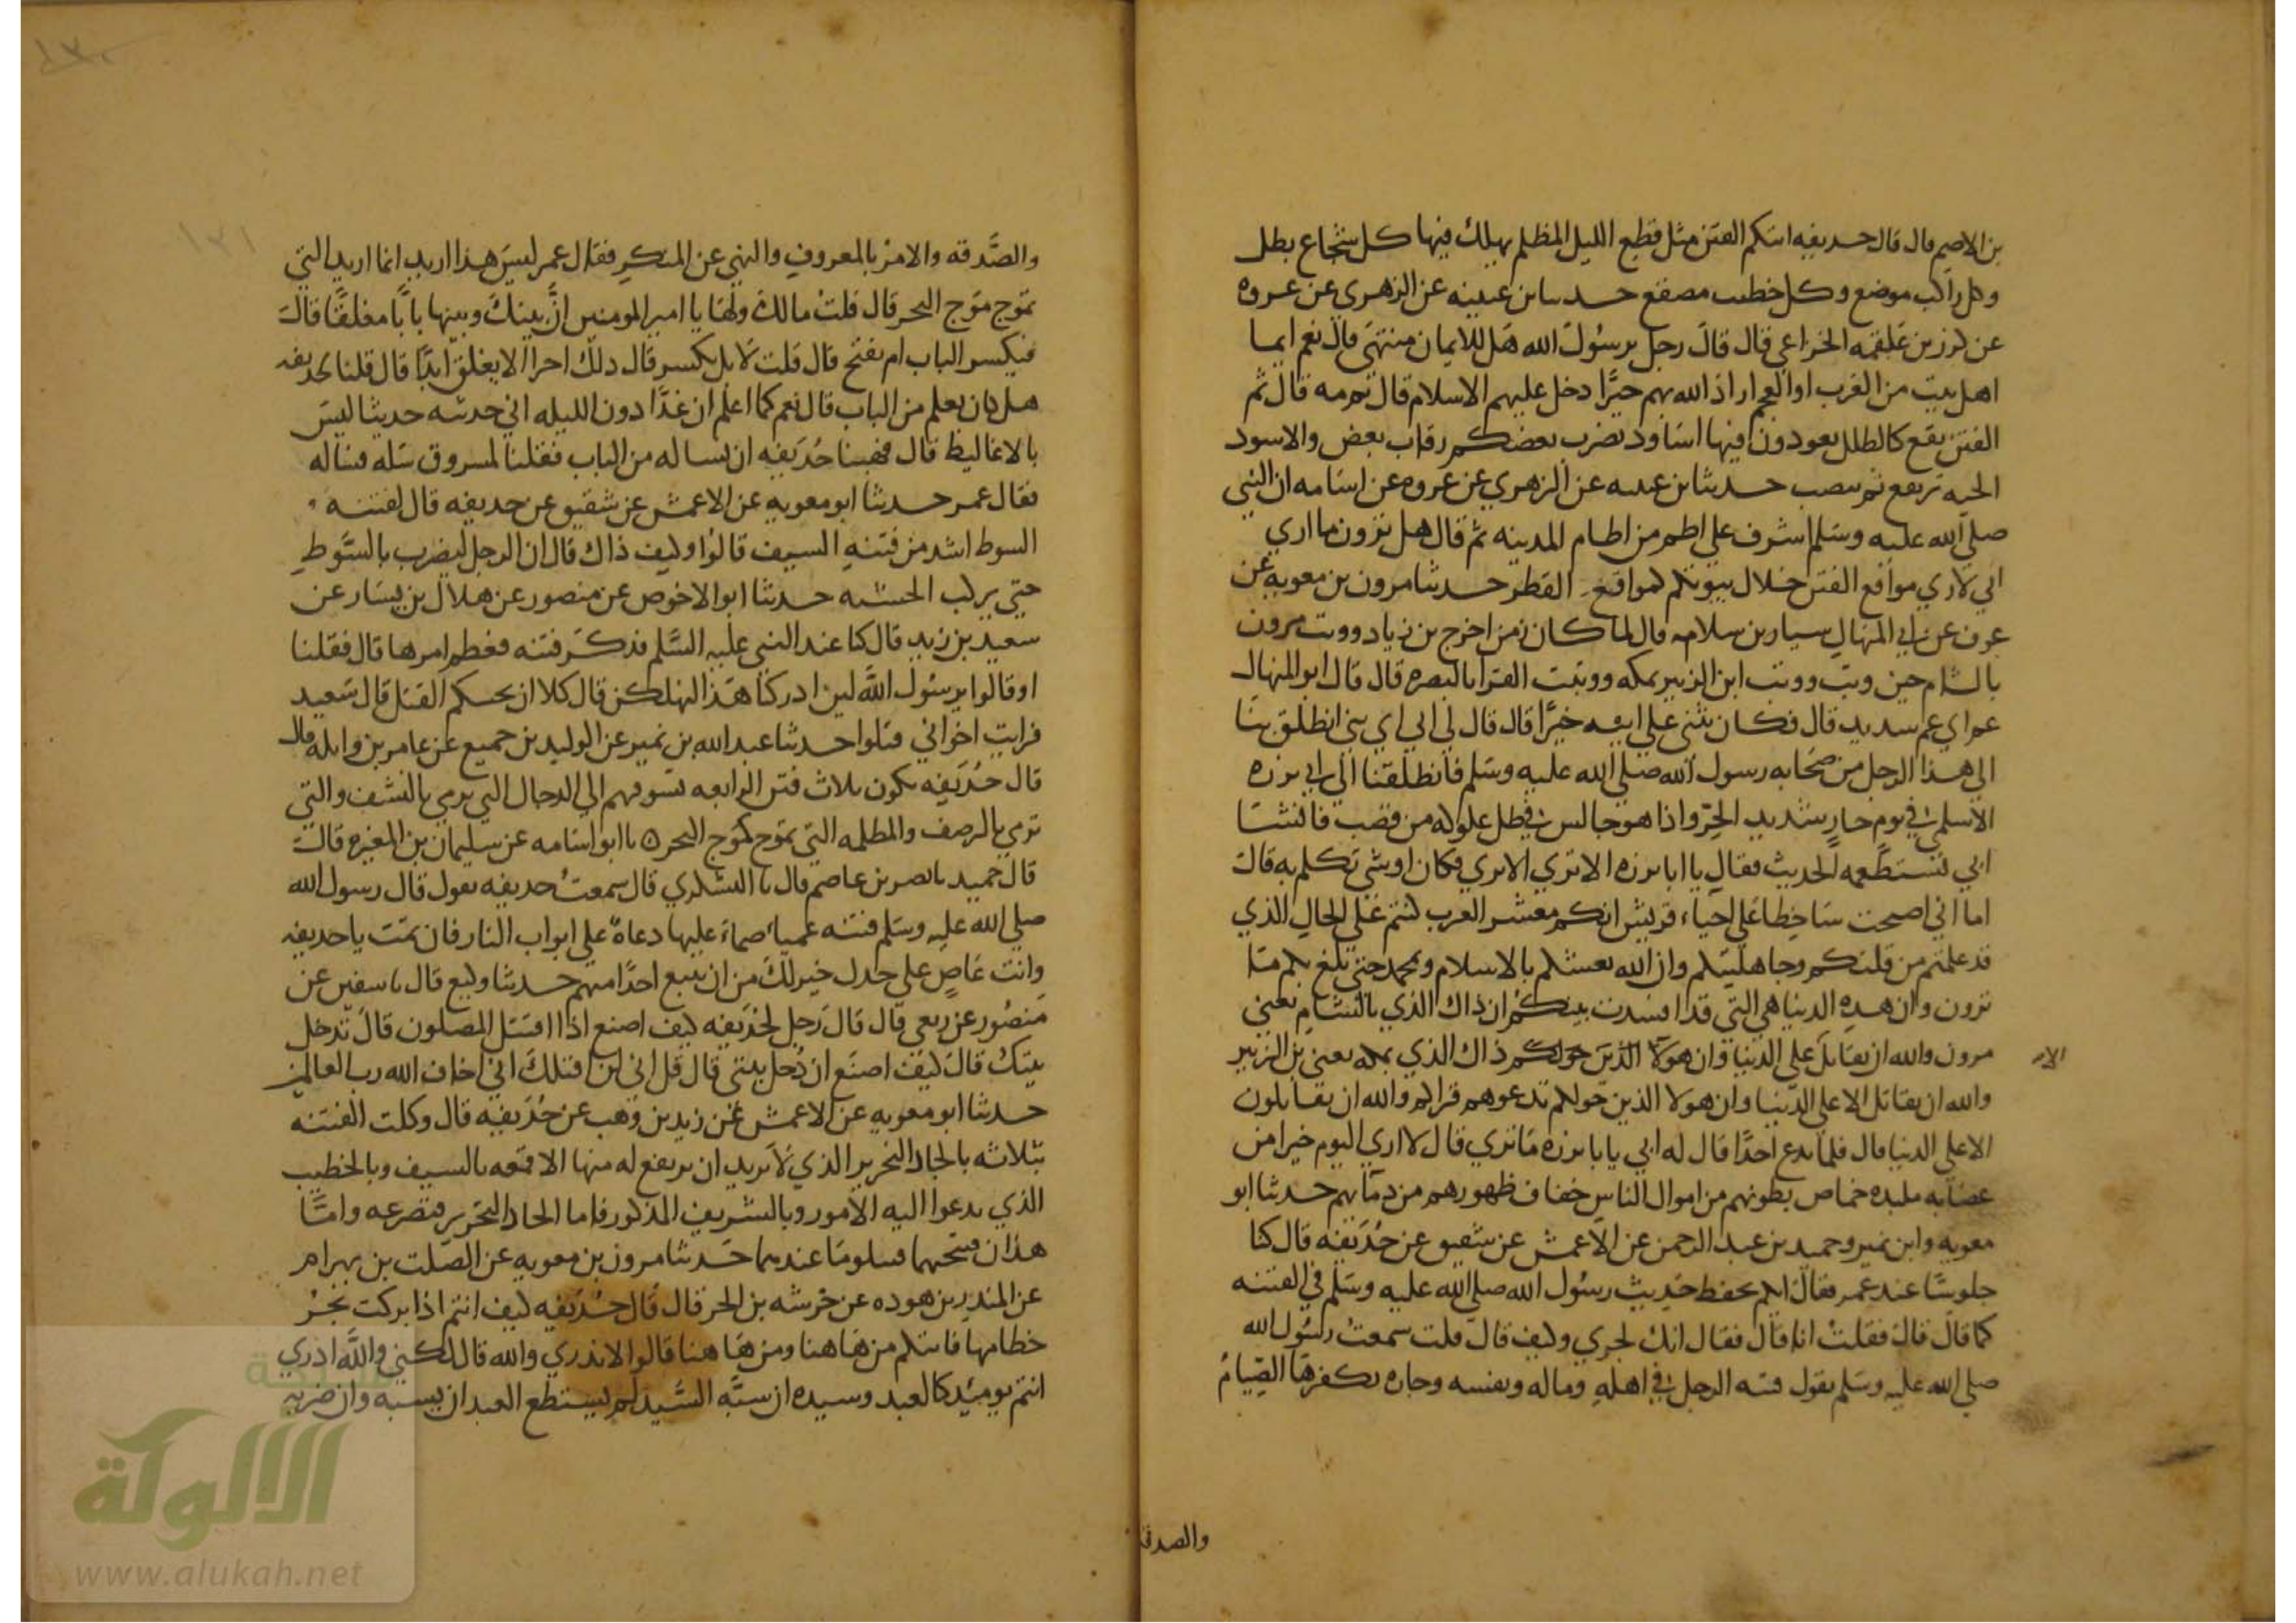 بن الاصم قال قال حذيفه اتتكم الفتن مثل قطع الليل المظلم يهلك فيها كل شجاع بطل
وكل راكب موضع وكل خطيب مصقع حدثنا بن عيينه عن الزهري عن عروه
عن كرز بن علقمه الخزاعي قال قال رجل يرسول الله هل للايمان منتهى قال نعم ايما
اهل بيت من العرب او العجم اراد الله بهم خيرًا دخل عليهم الاسلام قال ثم مه قال ثم
الفتن يقع كالظلل يعودون فيها اساود يضرب بعضكم رقاب بعض والاسود
الحيه ترتفع ثم تنصب حدثنا بن عيينه عن الزهري عن عروه عن اسامه ان النبي
صلى الله عليه وسلم اشرف علي اطم من اطام المدينه ثم قال هل ترون ما اري
اني لاري مواقع الفتن خلال بيوتكم كمواقع القطر حدثنا مرون بن معويه عن
عوف عن ابي المنهال سيار بن سلامه قال لما كان زمن اخرج بن زياد ووثب مرون
بالشام حين وثب ووثب ابن الزبير بمكه ووثبت القرا بالبصره قال قال ابو المنهال
غم ابي غم شديد قال فكان يثني علي ابيه خيرًا قال قال لي ابي اي بني انطلق بنا
الى هذا الرجل من صحابه رسول الله صلى الله عليه وسلم فانطلقنا الى ابي برزه
الاسلمي في يوم حار شديد الحرّ واذا هو جالس في ظل علو له من قصب فانشا
ابي يستطعمه الحديث فقال يا ابا برزه الا تري الا تري فكان اوشي تكلم به قال
اما اني اصبحت ساخطا علي احياء قريش انكم معشر العرب كنتم على الحال الذي
قد علمتم من قلتكم وجاهليتكم وان الله نعشكم بالاسلام وبمحمد حتى بلغ بكم ما
ترون وان هذه الدنيا هي التي قد افسدت بينكم ان ذاك الذي بالشام يعني
مرون والله ان يقاتل علي الدنيا وان هولا الذين حولكم ذاك الذي بمكه يعني بن الزبير
الا
والله ان يقاتل الا علي الدنيا وان هولا الذين حولكم تدعوهم قراكم والله ان يقاتلون
الا علي الدنيا قال فلما لم يدع احدًا قال له ابي يابا برزه ما تري قال لا اري اليوم خيرا من
عصابه ملبده خماص بطونهم من اموال الناس خفاف ظهورهم من دمائهم حدثنا ابو
معويه وابن نمير وحميد بن عبد الرحمن عن الاعمش عن شقيق عن حُذيفه قال كنا
جلوسًا عند عمر فقال ايكم يحفظ حديث رسول الله صلى الله عليه وسلم في الفتنه
كما قال قال فقلت انا قال فقال انك لجري وكيف قال قلت سمعت رسول الله
صلي الله عليه وسلم يقول فتنه الرجل في اهله وماله ونفسه وجاره يكفرها الصيام
والصدقه
١٣١
والصَّدقه والامر بالمعروف والنهي عن المنكر فقال عمر ليس هذا اريد انما اريد التي
تموج موج البحر قال قلت مالك ولها يا امير المومنين انَّ بينك وبينها بابًا مغلقًا قال
فيكسر الباب ام يفتح قال قلت لا بل يكسر قال ذلك احرا الا يغلق ابدًا قال قلنا لحذيفه
هل كان يعلم من الباب قال نعم كما اعلم ان غدًا دون الليله اني حدثته حديثا ليس
بالاغاليط قال فهبنا حُذيفه ان نساله من الباب فقلنا لمسروق سله فساله
فقال عمر حدثنا ابو معويه عن الاعمش عن شقيق عن حذيفه قال لفتنه
السوط اشد من فتنه السيف قالوا وكيف ذاك قال ان الرجل ليضرب بالسَّوط
حتي يركب الخشبه حدثنا ابو الاحوص عن منصور عن هلال بن يسار عن
سعيد بن زيد قال كنا عند النبي عليه السلم فذكر فتنه فعظم امرها قال فقلنا
او قالوا يرسول الله لين ادركنا هذا لنهلكن قال كلا ان بحسبكم القتل قال سعيد
فرايت اخواني قتلوا حدثنا عبد الله بن نمير عن الوليد بن جميع عن عامر بن واثله قال
قال حُذيفه تكون ثلاث فتن الرابعه تسوقهم الي الدجال التي ترمي بالنشف والتي
ترمي بالرضف والمظلمه التي تموج كموج البحر ٥ نا ابو اسامه عن سليمان بن المغيره قال
قال حميد نا نصر بن عاصم قال نا اليشكري قال سمعت حذيفه يقول قال رسول الله
صلي الله عليه وسلم فتنه عمياء صماء عليها دعاة علي ابواب النار فان تمت يا حذيفه
وانت عاصٍ علي جذل خير لك من ان تتبع احدًا منهم حدثنا وكيع قال نا سفين عن
منصور عن ربعي قال قال رجل لحذيفه كيف اصنع اذا اقتتل المصلون قال تدخل
بيتك قال كيف اصنع ان دُخل بيتي قال قل اني لن اقتلك اني اخاف الله رب العالمين
حدثنا ابو معويه عن الاعمش عن زيد بن وهب عن حُذيفه قال وكلت الفتنه
بثلاثه بالجاد النحرير الذي لا يريد ان يرتفع له منها الا قمعه بالسيف وبالخطيب
الذي يدعوا اليه الامور وبالشريف المذكور فاما الجاد النحرير فتصرعه وامَّا
هذان فتبحثهما فتبلو ما عندهما حدثنا مرون بن معويه عن الصلت بن بهرام
عن المنذر بن هوذه عن خرشه بن الحر قال قال حُذيفه كيف انتم اذا بركت تجر
خطامها فاتتكم من هاهنا ومن هاهنا قالوا لا ندري والله قال لكني والله ادري
انتم يوميذ كالعبد وسيده ان سبَّه السَّيد لم يستطع العبد ان يسبه وان ضربه
شبكة
الألوكة
www.alukah.net